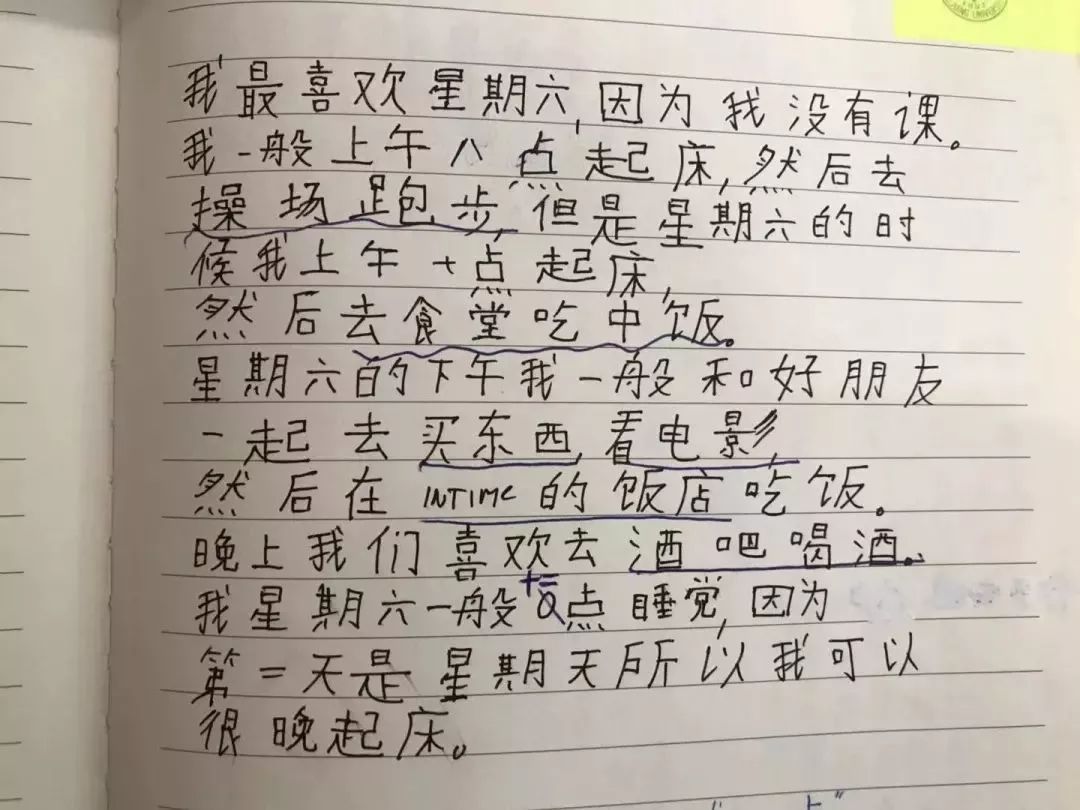 我最喜欢星期六,因为我没有课。
我一般上午八点起床,然后去
操场跑步,但是星期六的时
候我上午十点起床,
然后去食堂吃中饭。
星期六的下午我一般和好朋友
一起去买东西,看电影,
然后在 INTIME 的饭店吃饭。
晚上我们喜欢去酒吧喝酒。
十二
我星期六一般0点睡觉,因为
第二天是星期天所以我可以
很晚起床。